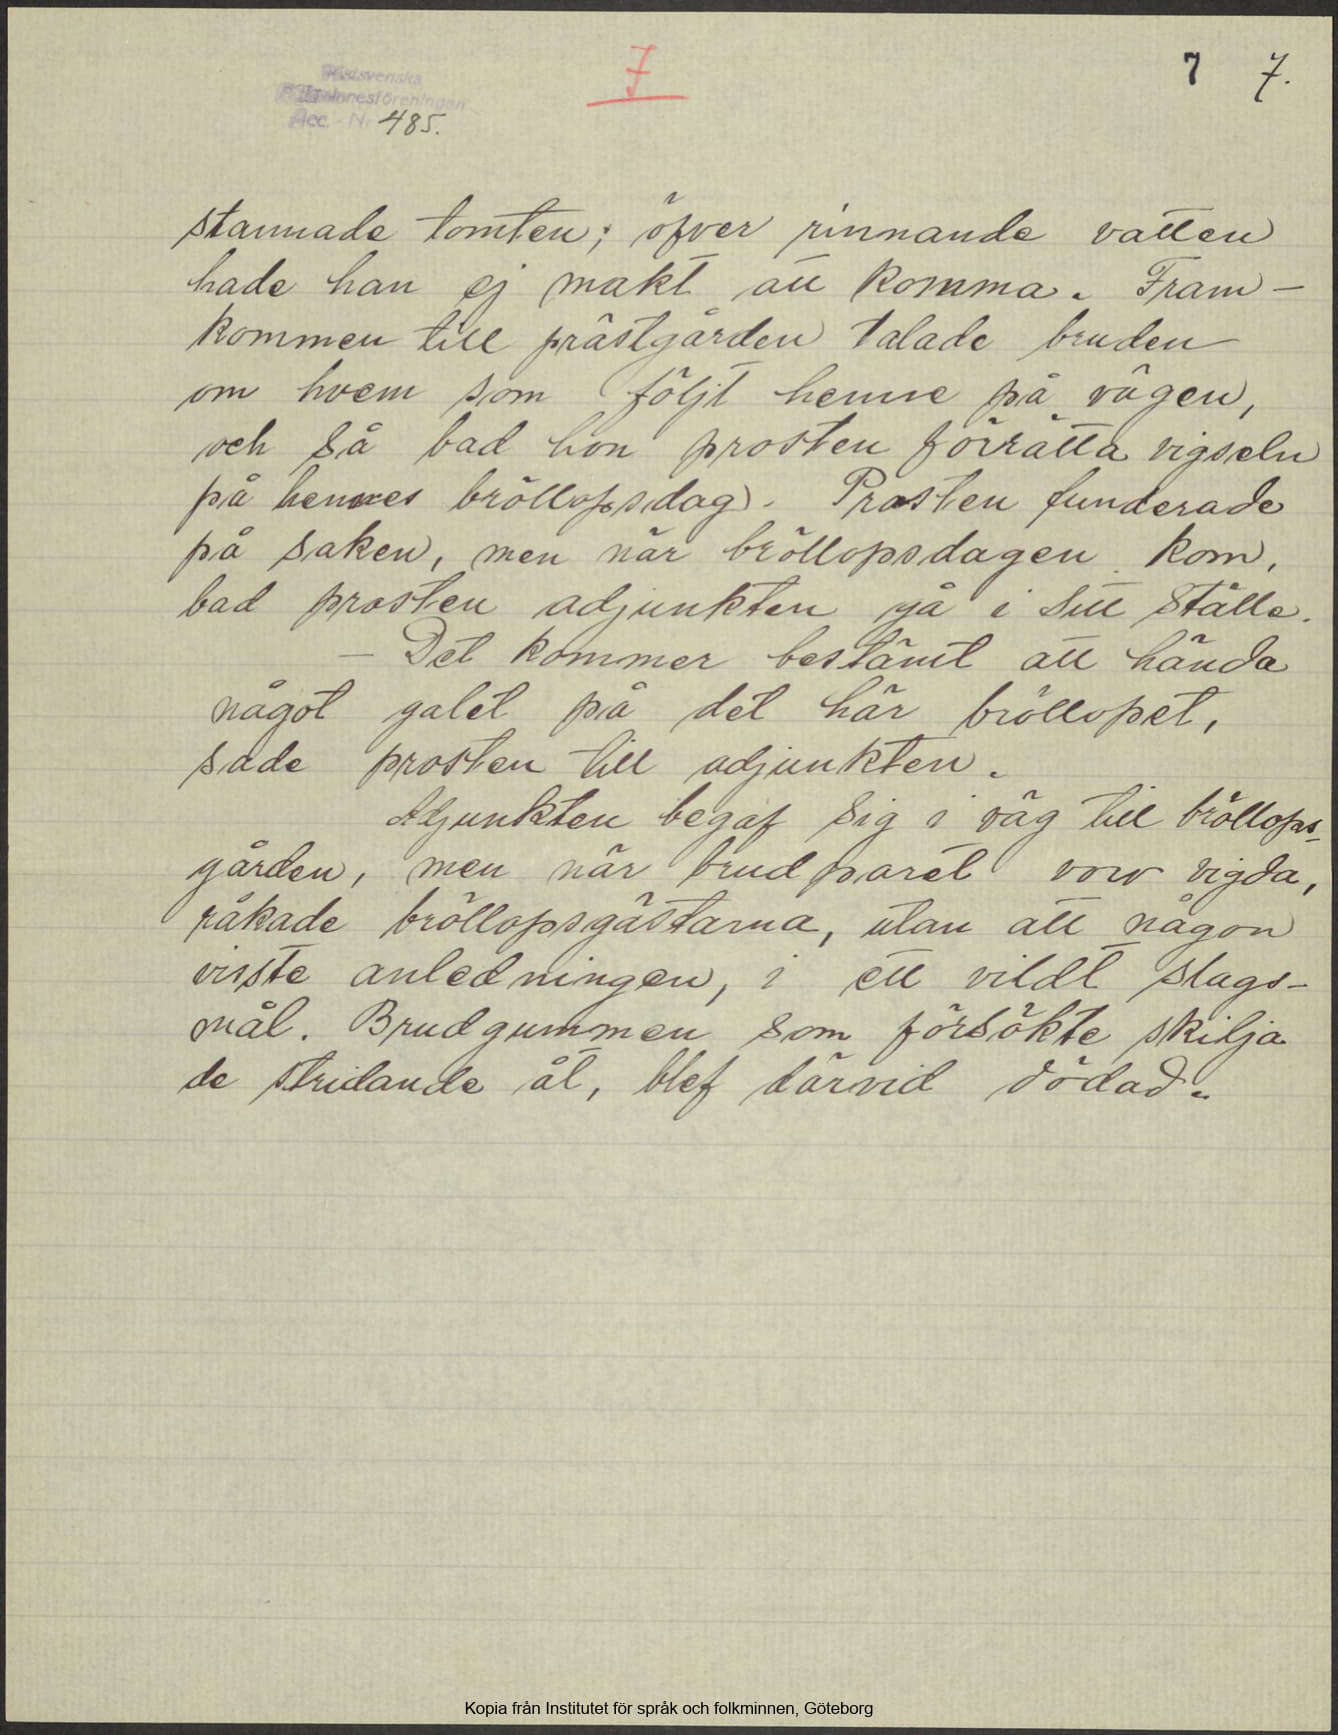 Västsvenska
Folkminnesföreningen
Acc. - Nr 485.
7
7 7.
stannade tomten; öfver rinnande vatten
hade han ej makt att komma. Fram-
kommen till prästgården talade bruden
om hvem som följt henne på vägen,
och så bad hon prosten förrätta vigseln
på hennes bröllopsdag. Prosten funderade
på saken, men när bröllopsdagen kom,
bad prosten adjunkten gå i sitt ställe.
— Det kommer bestämt att hända
något galet på det här bröllopet,
sade prosten till adjunkten.
Adjunkten begaf sig i väg till bröllops-
gården, men när brudparet voro vigda,
råkade bröllopsgästarna, utan att någon
visste anledningen, i ett vildt slags-
mål. Brudgummen som försökte skilja
de stridande åt, blef därvid dödad.
Kopia från Institutet för språk och folkminnen, Göteborg